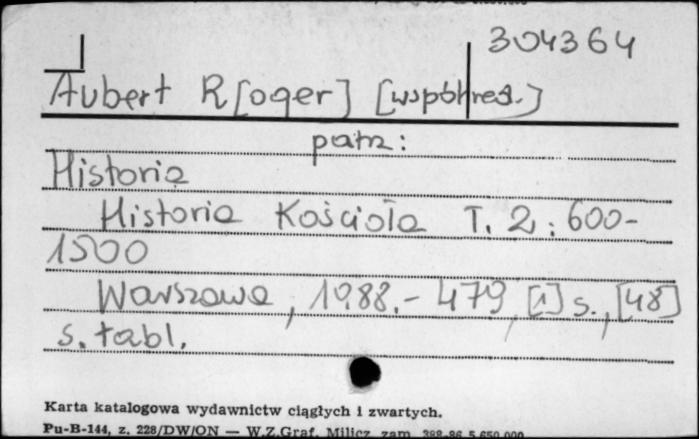 304364
Aubert R[oger] [współred.]
patrz:
Historia
Historia Kościoła T. 2: 600-
1500
Warszawa, 1988.- 479, [1] s., [48]
s. tabl.
Karta katalogowa wydawnictw ciągłych i zwartych.
Pu-B-144, z. 228/DW/ON — W.Z.Graf. Milicz zam. 388-86 5.650.000